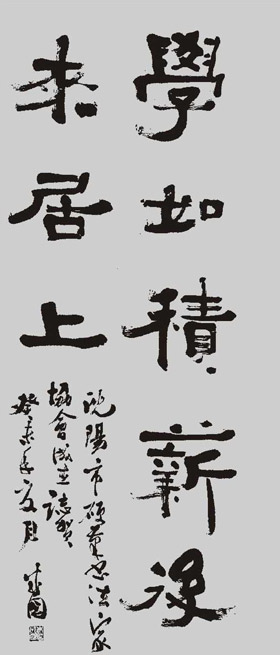 學如積薪後
来居上
沈陽市硬筆书法家
協會成立誌賀
癸未年夏月